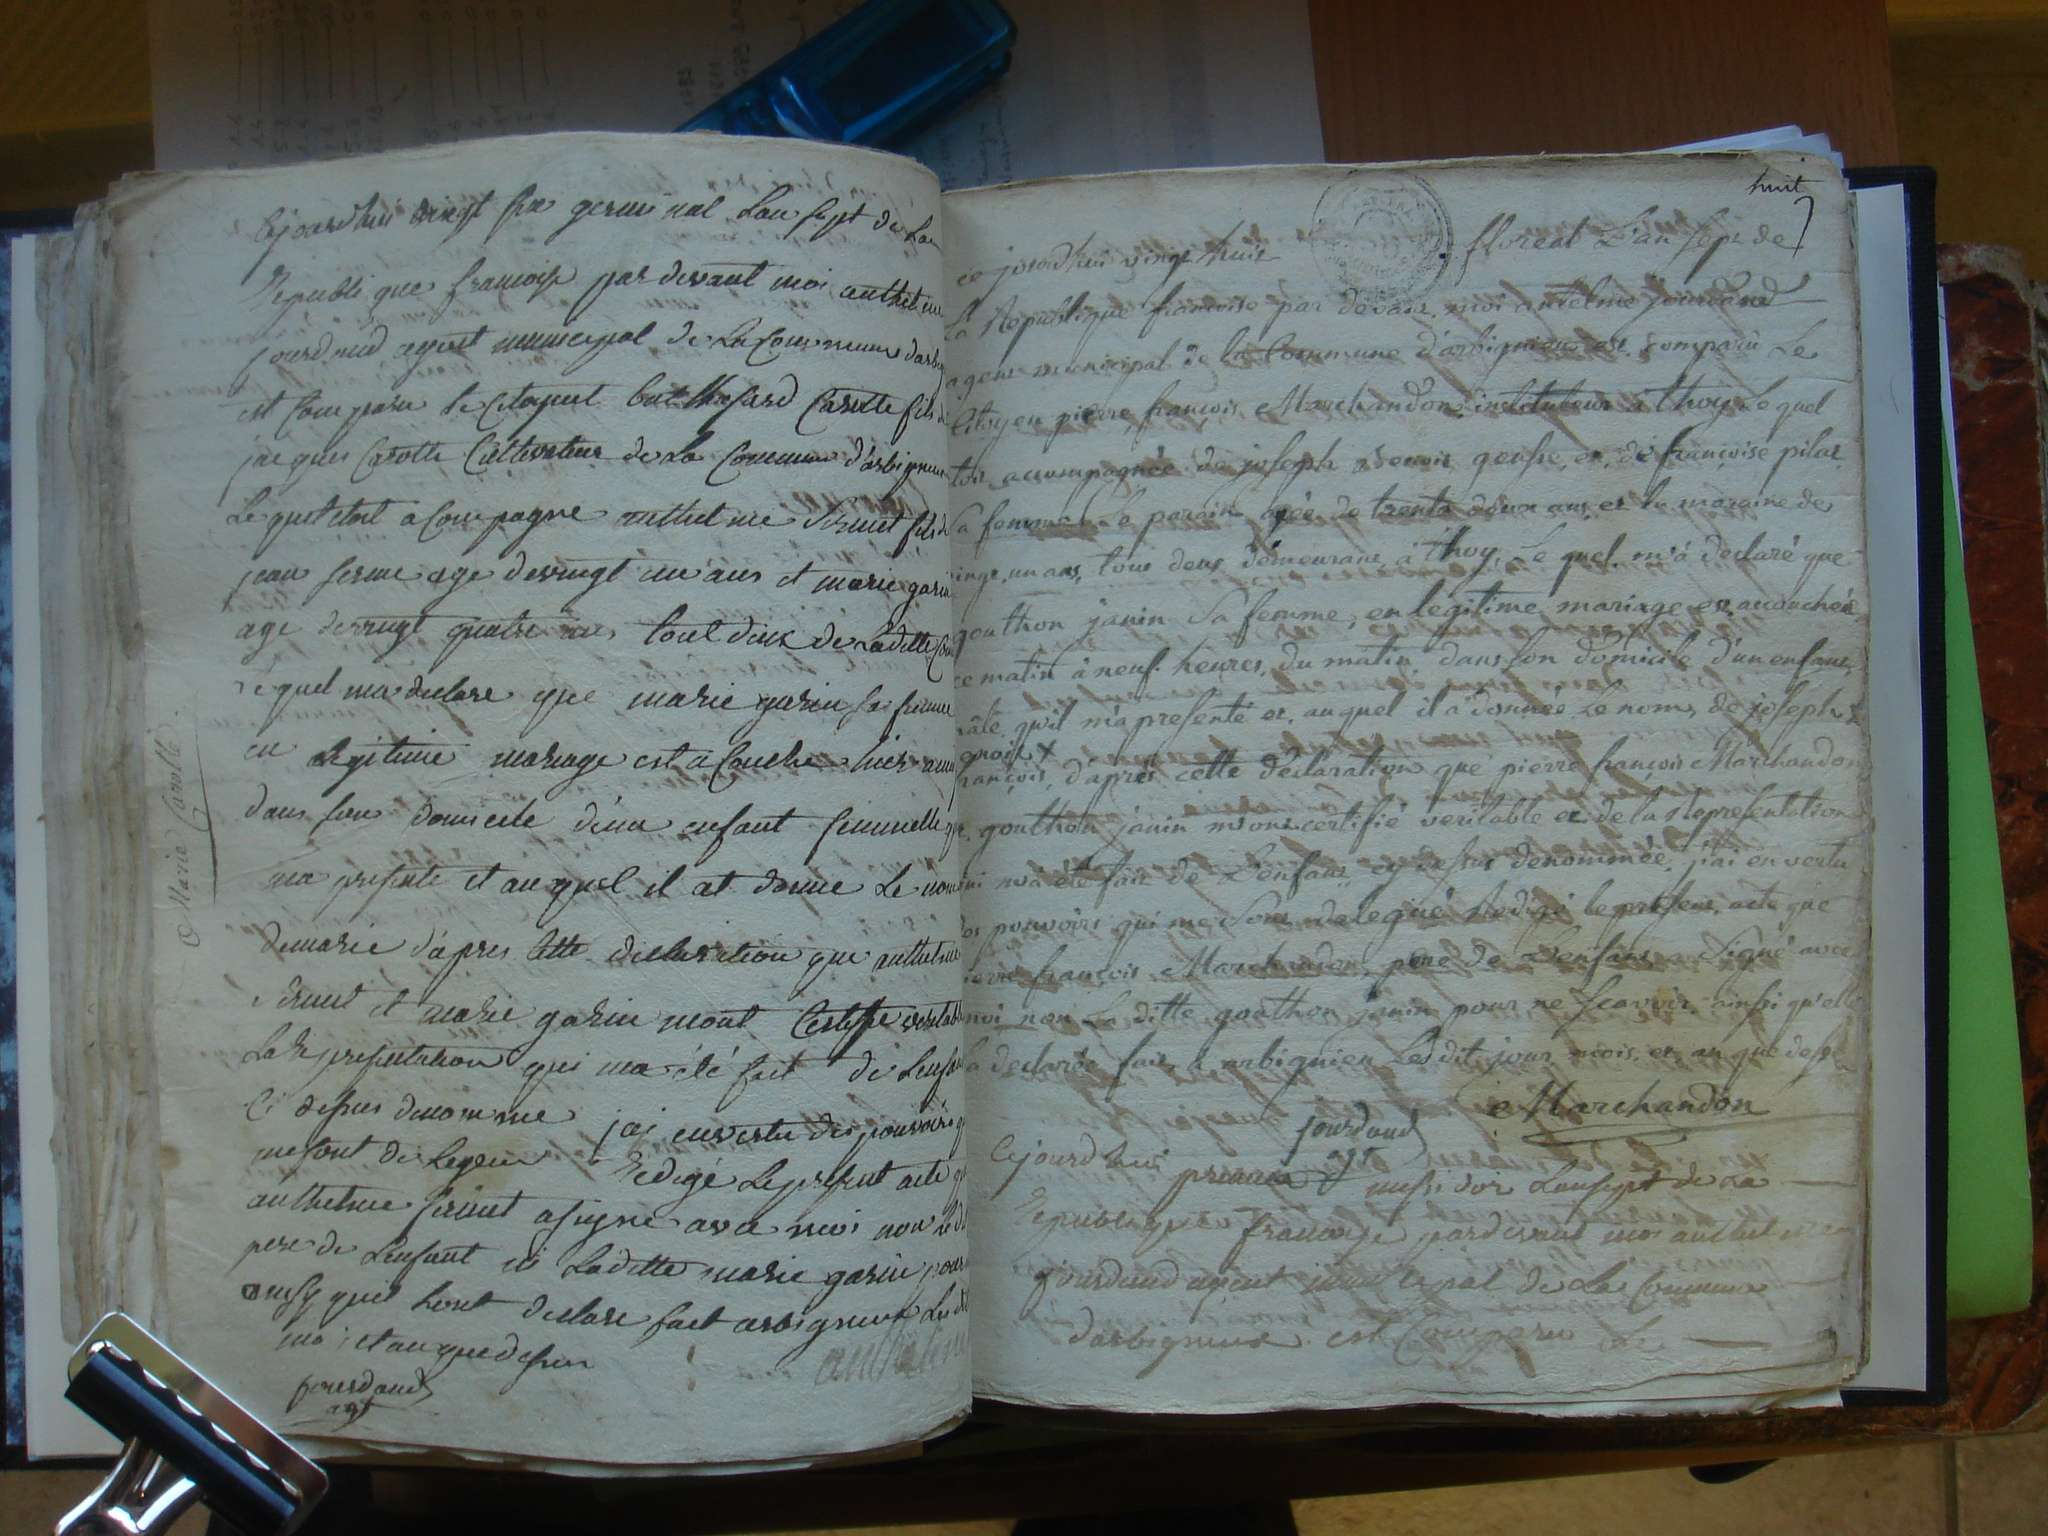 Cejourdhui vingt six germinal Lan sept de La
Republique francoise par devant moi anthelme
jourdand agent municipal de La Commune darbi
est Comparu le Citoyent balthasard Carotte fils de
jacques Carotte Cultivateur de La Commune d'arbignieux
Le quel etoit acompagne anthelme Sermet fils de
jean sermet age de vingt un ans et marie garin
age de vingt quatre ans tout deux de Laditte Com
Le quel ma declare que marie garin sa femme
en legitime mariage est acouche hier
dans son domicile d'un enfant femmelle que
ma presente et au quel il at donne Le nom
de marie d'apres Cette declaration que anthelme
Sermet et marie garin mont Certifie veritable
La Representation qui ma été fait de Lenfan
Ci desus denomme jai en vertu des pouvoirs q
me sont de Legeur Redigé Le present acte q
anthelme Sermet a signe avec moi non le dit
pere de Lenfant ni Laditte marie garin pour
qu'il hont declare fait arbignieux Les dit
mois et an que desus
jourdand
agt
anthelme
Marie Carotte
huit
7
ce jourd'huit vingt huit floreal L'an sept de
La Republique françoise par devant moi antelme jourdand
agent municipal de la Commune d'arbignieu est comparû Le
Citoyen pierre françois Marchandon instituteur à thoy Le quel
etoit accompagnée de joseph Benoit et de françoise pilat
Sa femme Le parain agée de trente deux ans et la maraine de
vingt un ans, tous deux demeurant à thoy, Le quel m'à declaré que
gouthon janin Sa femme, en legitime mariage est accouchée
ce matin à neuf heures du matin dans son domicile d'un enfant
mâle qu'il m'a presenté et auquel il à donnée Le nom de joseph X
benoit X
françois, d'après cette déclaration que pierre françois Marchandon
gouthon janin m'ont certifié veritable et de la Representation
qui m'à été fait de L'enfant cy dessus denommée, j'ai en vertu
des pouvoirs qui me Sont delegué Redigé le present acte que
pierre françois Marchandon pere de L'enfant a Signé avec
moi non La ditte gouthon janin pour ne Scavoir ainsi qu'elle
la declarée fait à arbignieu Les dit jour mois et an que dess
Marchandon
jourdand
agt
Cejourd'hui premier messidor Lan sept de La
Republique francoise pardevant moi anthelme
jourdand agent municipal de La Commune
darbignieux est Comparu Le